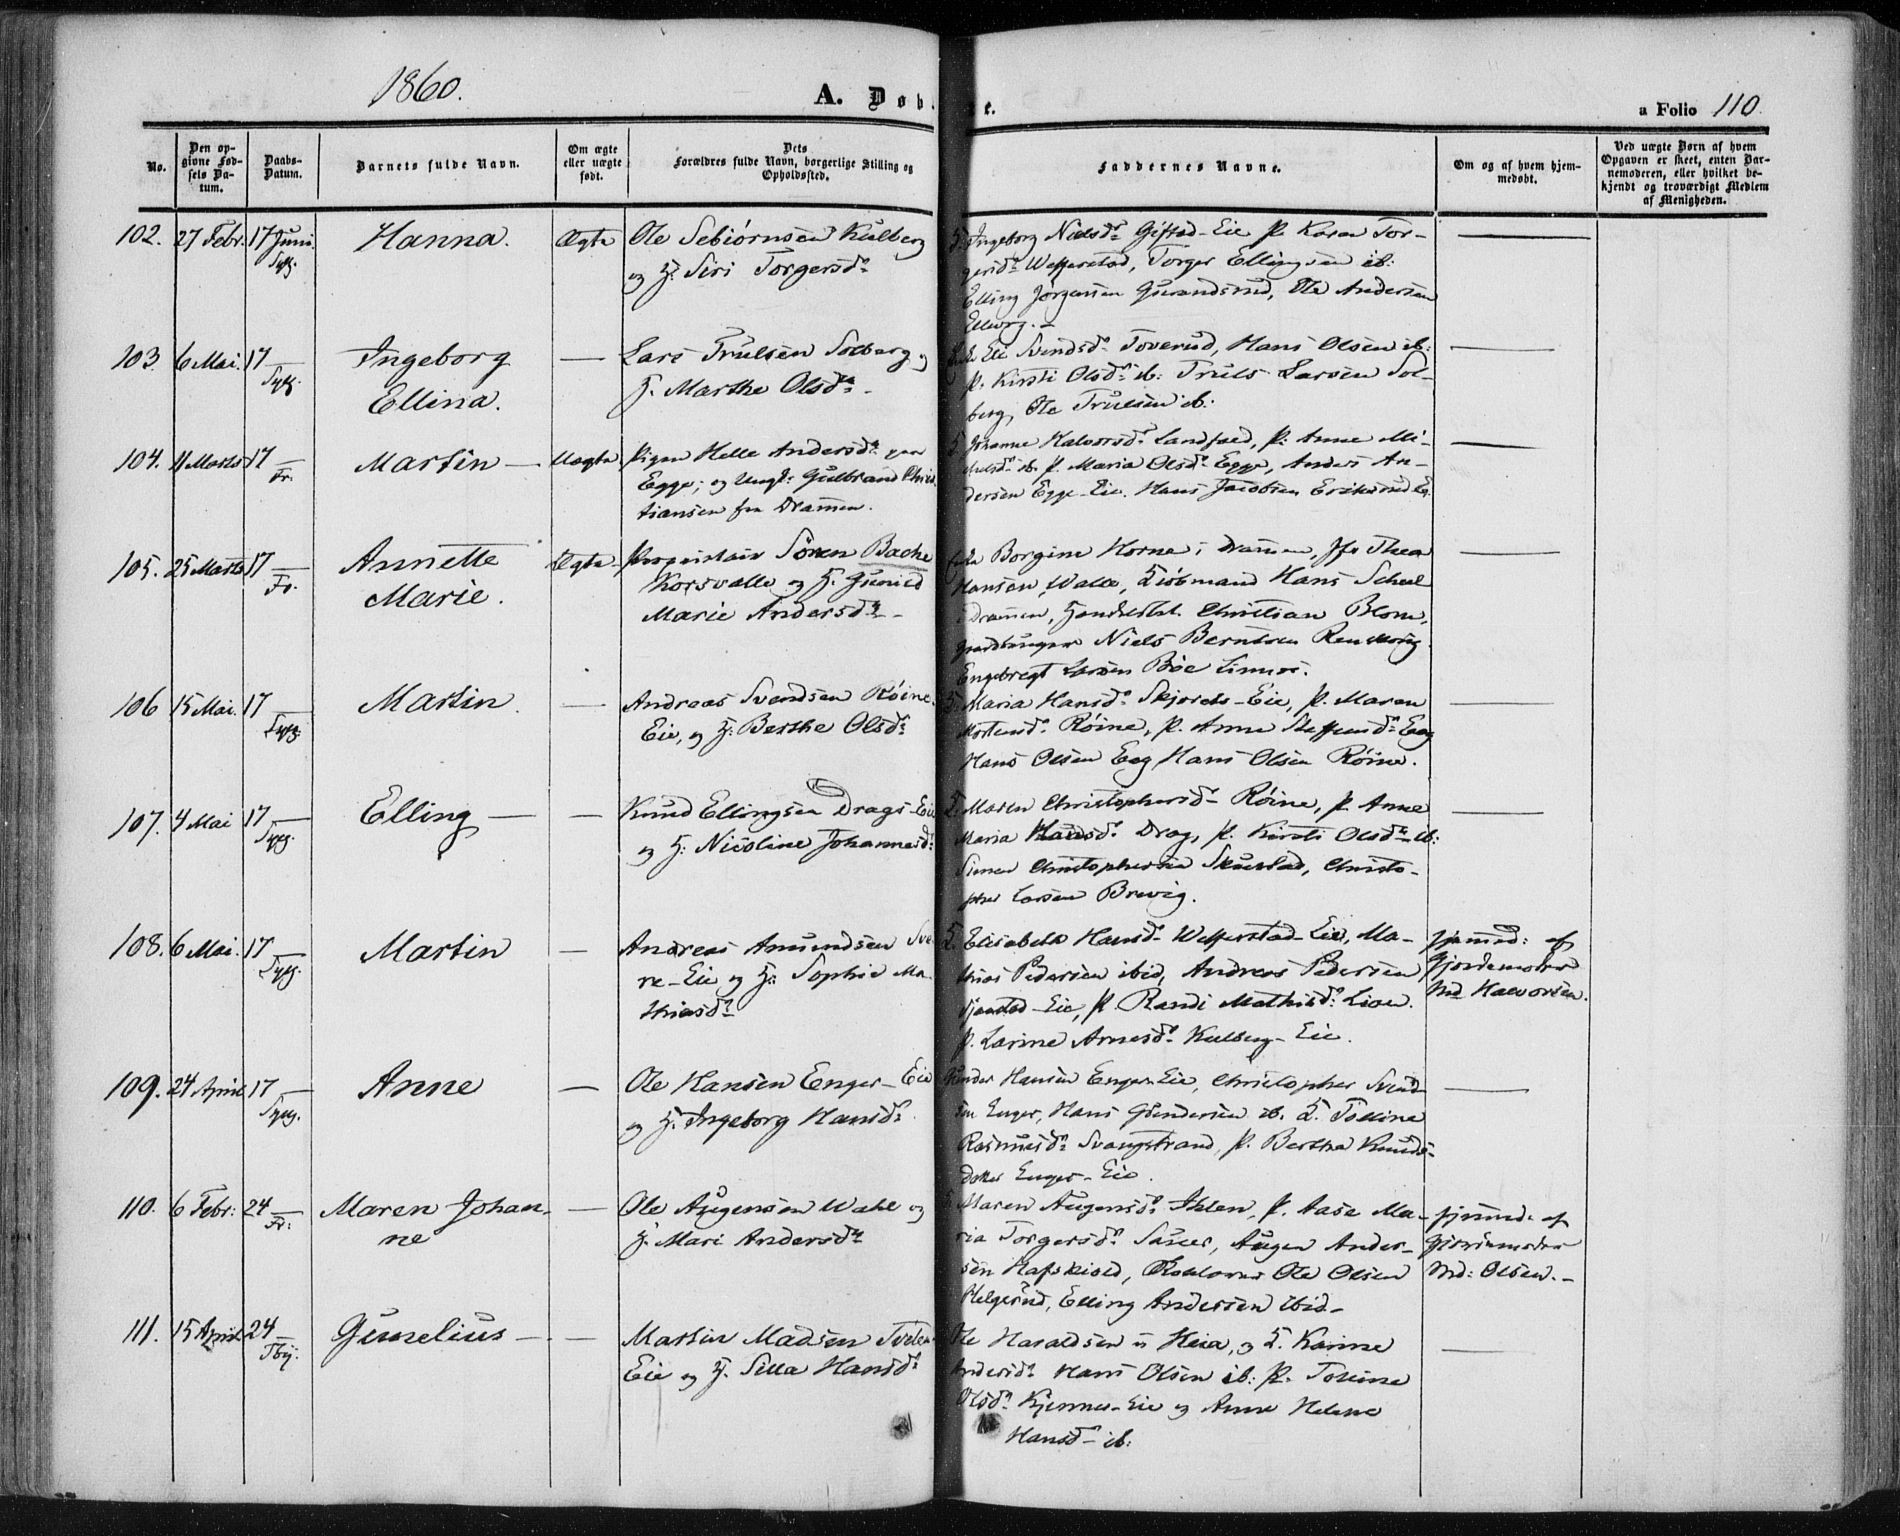 1860.
A. Døb-
te.
a Folio 110.
No.
Den op-
givne Fød-
sels Da-
tum.
Daabs-
Datum.
Barnets fulde Navn.
Om ægte
eller uægte
født.
Dets
Forældres fulde Navn, borgerlige Stilling og
Opholdssted.
Faddernes Navne.
Om og af hvem hjem-
medøbt.
Ved uægte Børn af hvem
Opgaven er skeet, enten Bar-
nemoderen, eller hvilket be-
kjendt og troværdigt Medlem
af Menigheden.
102. 27 Febr. 17 Juni
Hanna.
Ægte
Ole Sebiørnsen Kulberg
og H. Siri Torgersdr
Ingeborg Nielsdr Gifstad-Eie P. Karen Tor-
gersdr Welferstad, Torger Ellingsen ib:
Elling Jørgensen Gurandsrud, Ole Andersen
103. 6 Mai. 17
Ingeborg
Ellina.
Lars Trulsen Solberg og
H. Marthe Olsdr
Eli Svendsdr Toverud, Hans Olsen ib:
P. Kirsti Olsdr ib: Truls Larsen Sol-
berg, Ole Trulsen ib.
104. 4 Marts 17
Fr.
Martin
Uægte
Pigen Helle Andersdr paa
Egge, og Ungk: Gulbrand Chris-
tiansen fra Drammen.
Johanne Halvorsdr Landfald, P. Anne Mi-
chelsdr ib. P. Maria Olsdr Egge, Anders An-
dersen Egge-Eie. Hans Jacobsen Eriksrud E.
105. 25 Marts 17
Fr.
Annette
Marie.
Ægte
Proprietair Søren Bache
Korsvalle og H. Gunild
Marie Andersdr
Borgine Horne i Drammen, Jfr Thea
Hansen Walle, Kiøbmand Hans Scheel
Drammen, Handelsbet. Christian Blom,
Niels Berntsen Renskoug
Engebregt Larsen Bøe Limnos.
106 15 Mai. 17
Martin.
Andreas Svendsen Røine
Eie, og H: Berthe Olsdr
Maria Hansdr Skjords-Eie, P. Maren
Mortensdr Røine, P. Anne Steffensdr Eeg
Hans Olsen Eeg Hans Olsen Røine.
107. 4 Mai 17
Elling
Knud Ellingsen Drags-Eie
og H: Nicoline Johannesdr
Maren Christophersdr Røine, P. Anne
Maria Hansdr Drag, P. Kirsti Olsdr ib:
Simen Christophersen Skustad, Christo-
pher Larsen Brevig.
108. 6 Mai. 17
Martin
Andreas Amundsen Sve-
re-Eie og H: Sophie Ma-
thiasdr
Elisabeth Hansdr Welferstad-Eie, Ma-
thias Pedersen ibid, Andreas Pedersen
Eie, P. Randi Mathisdr Lien.
P. Larine Arnesdr Kulberg-Eie.
hjemmed: af
Gjordemoder
Md Halvorsen.
109. 24 April 17
Anne
Ole Hansen Enger-Eie
og H. Ingeborg Hansdr
Gunder Hansen Enger-Eie, Christopher Svend-
sen Enger, Hans Gundersen ib. K. Tolline
Rasmusdr Svangstrand, P. Berthea Knuds-
datter Enger-Eie
110. 6 Febr: 24
Fr:
Maren Johan-
ne
Ole Augensen Wahl og
H. Mari Andersdr
Maren Augensdr Ihlen, P. Aase Ma-
ria Torgersdr Sauer, Augen Ander-
sen Hafskiold, Ole Olsen
Helgerud, Elling Andersen ibid
hjemmed: af
Gjordemoder
Md: Olsen.
111. 15 April 24
Gunelius
Martin Madsen Tveten-
Eie og H. Silla Hansdr
Ole Haraldsen i Heia, og K. Karine
Andersdr Hans Olsen ib: P. Toline
Olsdr Kjennes-Eie og Anne Helene
Hansdr ib: